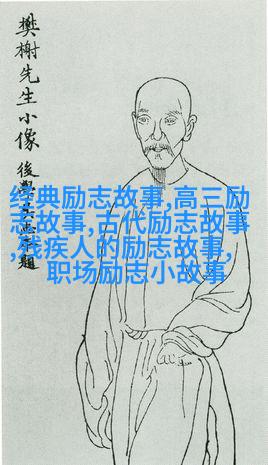 樊榭先生小像
後學
題
经典励志故事,高三励
志故事,古代励志故事
,残疾人的励志故事,
职场励志小故事